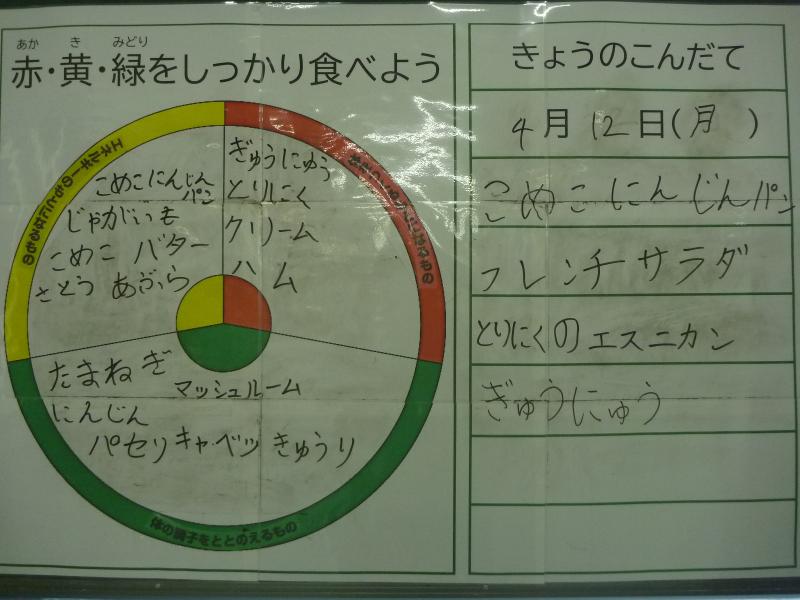 あか き みどり
赤・黄・緑をしっかり食べよう
エネルギーのもとになるもの
こめこにんじん
パン
じゃがいも
こめこ バター
さとう あぶら
ぎゅうにゅう
とりにく
クリーム
ハム
たまねぎ
マッシュルーム
にんじん
パセリ キャベツ きゅうり
体の調子をととのえるもの
きょうのこんだて
4月12日(月)
こめこにんじんパン
フレンチサラダ
とりにくのエスニカン
ぎゅうにゅう